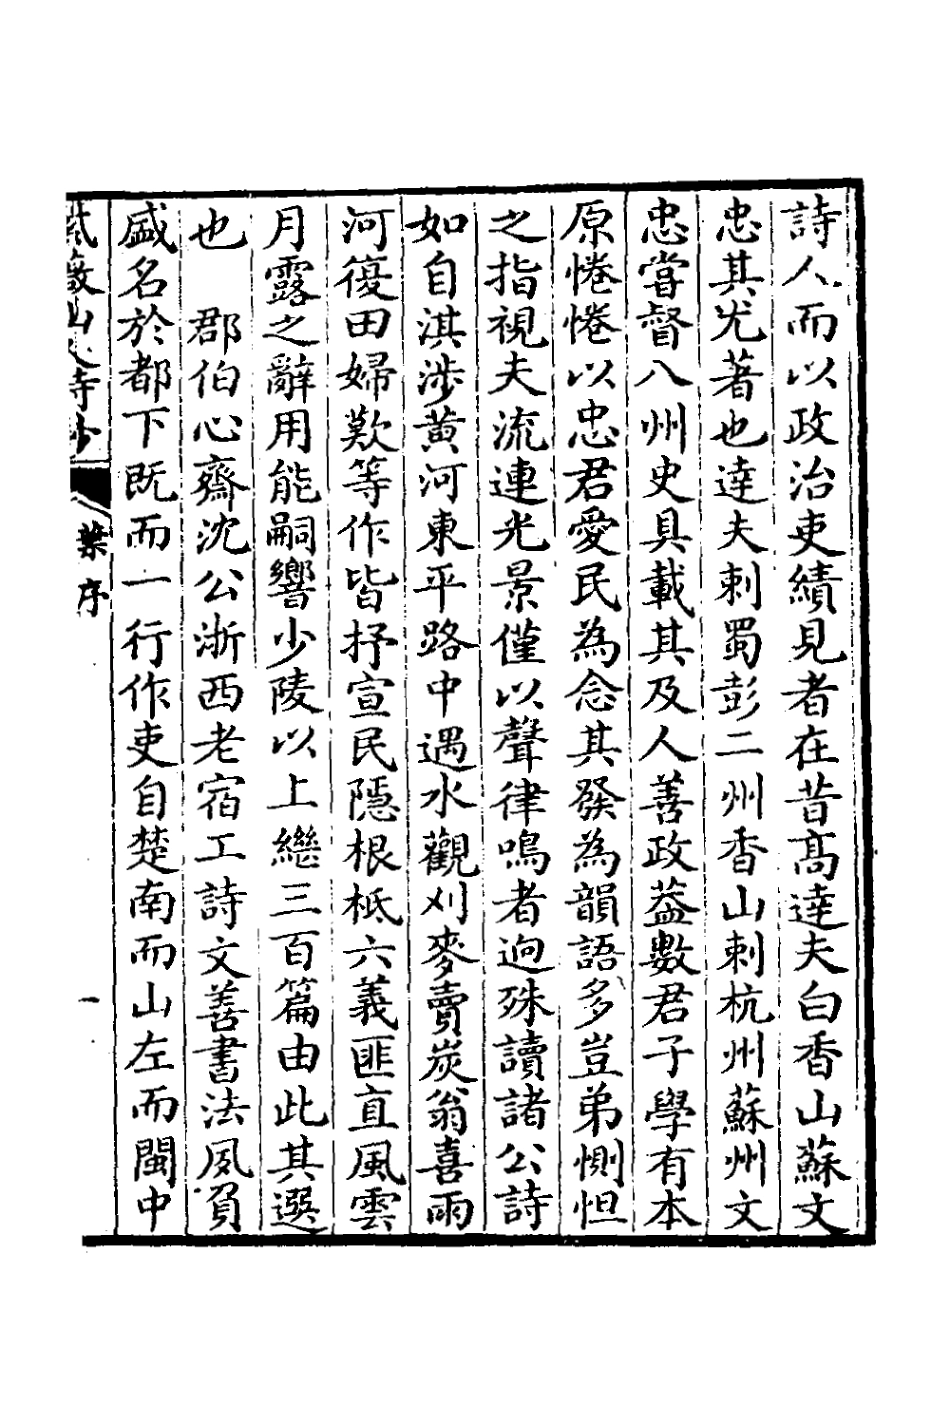 詩人而以政治吏績見者在昔高達夫白香山蘇文
忠其尤著也達夫刺蜀彭二州香山刺杭州蘇州文
忠嘗督八州史具載其及人善政葢數君子學有本
原惓惓以忠君愛民為念其發為韻語多豈弟惻怛
之指視夫流連光景僅以聲律鳴者逈殊讀諸公詩
如自淇涉黃河東平路中遇水觀刈麥賣炭翁喜雨
河復田婦歎等作皆抒宣民隱根柢六義匪直風雲
月露之辭用能嗣響少陵以上繼三百篇由此其選
也　郡伯心齋沈公浙西老宿工詩文善書法夙負
盛名於都下既而一行作吏自楚南而山左而閩中
山
詩鈔
葉序
一